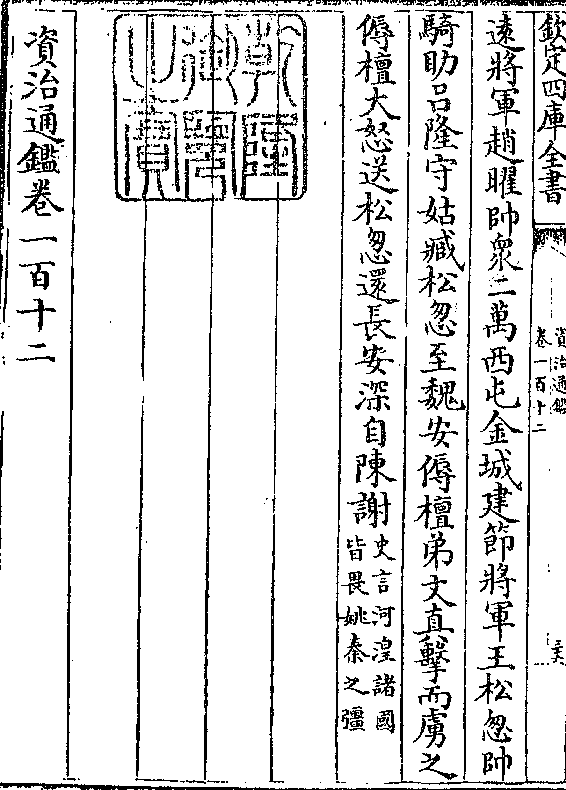 欽定四庫全書
資治通鑑
卷一百十二
遠將軍趙曜帥衆二萬西屯金城建節將軍王松怱帥
騎助呂隆守姑臧松怱至魏安傉檀弟文真擊而虜之
傉檀大怒送松怱還長安深自陳謝
史言河湟諸國
皆畏姚秦之彊
乾隆御覽之寶
資治通鑑卷一百十二